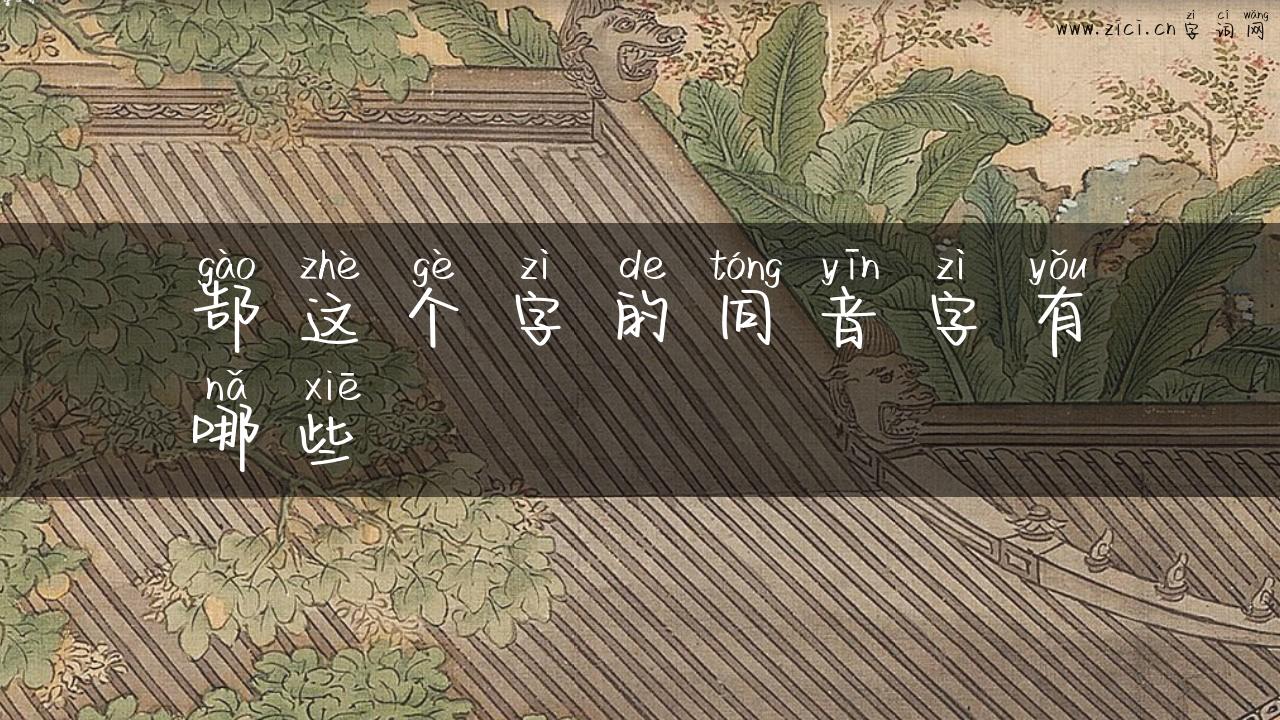 zì cí wǎng
www.zici.cn 字词网
gào zhè gè zì de tóng yīn zì yǒu
郜这个字的同音字有
nǎ xiē
哪些